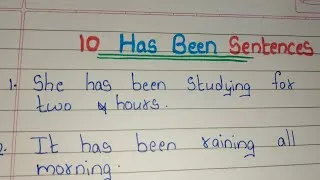 10 Has Been Sentences
1. She has been studying for
two hours.
2. It has been raining all
morning.